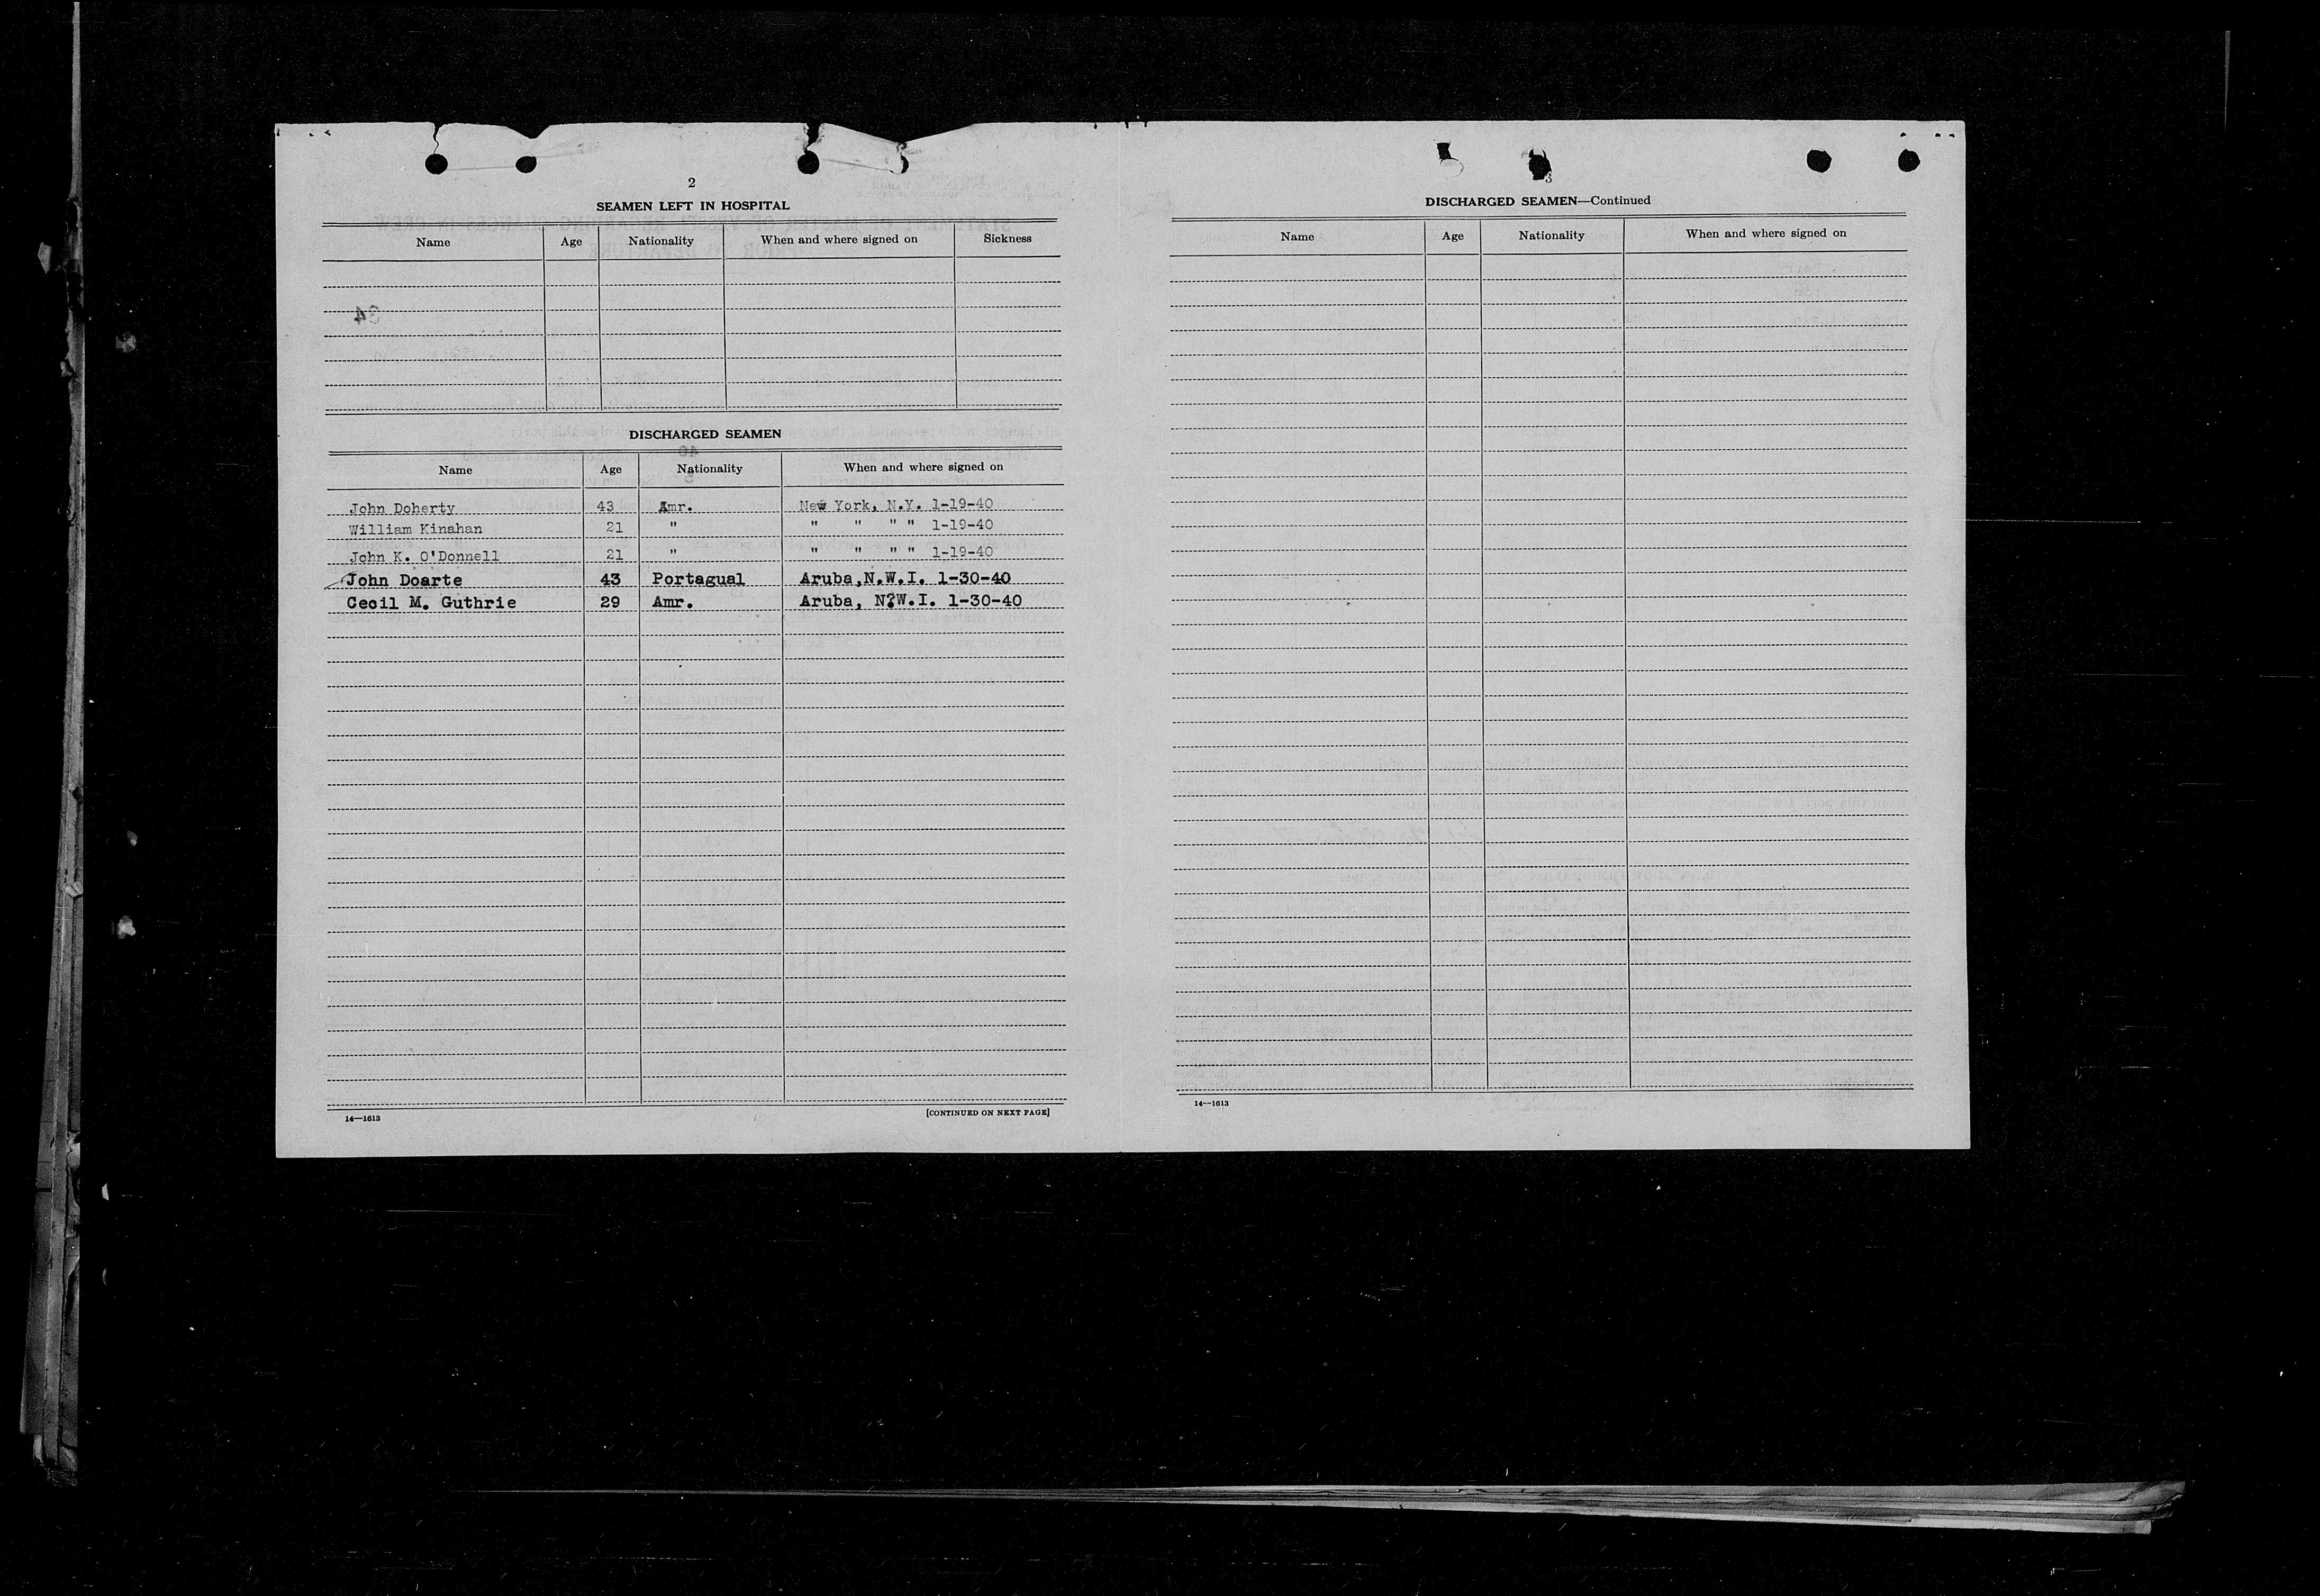 2
SEAMEN LEFT IN HOSPITAL
Name Age Nationality When and where signed on Sickness
DISCHARGED SEAMEN
Name Age Nationality When and where signed on
John Doherty 43 Amr. New York, N.Y. 1-19-40
William Kinahan 21 " " " " " 1-19-40
John K. O'Donnell 21 " " " " " 1-19-40
John Doarte 43 Portagual Aruba,N.W.I. 1-30-40
Cecil M. Guthrie 29 Amr. Aruba, N?W.I. 1-30-40
14—1613 [CONTINUED ON NEXT PAGE]
3
DISCHARGED SEAMEN—Continued
Name Age Nationality When and where signed on
14—1613